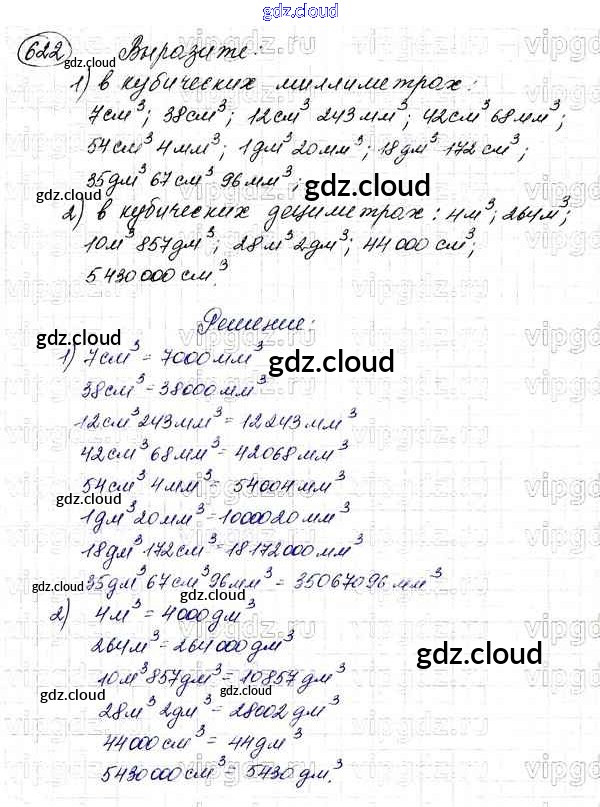 gdz.cloud
622 Выразите:
1) в кубических миллиметрах:
7см³; 38см³; 12см³ 243мм³; 42см³ 68мм³;
54см³ 4мм³; 1дм³ 20мм³; 18дм³ 172см³;
35дм³ 67см³ 96мм³;
2) в кубических дециметрах: 4м³; 264м³;
10м³ 857дм³; 28м³ 2дм³; 44000см³;
5430000см³.
Решение:
1) 7см³ = 7000мм³
38см³ = 38000мм³
12см³ 243мм³ = 12243мм³
42см³ 68мм³ = 42068мм³
54см³ 4мм³ = 54004мм³
1дм³ 20мм³ = 1000020мм³
18дм³ 172см³ = 18172000мм³
35дм³ 67см³ 96мм³ = 35067096мм³
2) 4м³ = 4000дм³
264м³ = 264000дм³
10м³ 857дм³ = 10857дм³
28м³ 2дм³ = 28002дм³
44000см³ = 44дм³
5430000см³ = 5430дм³.